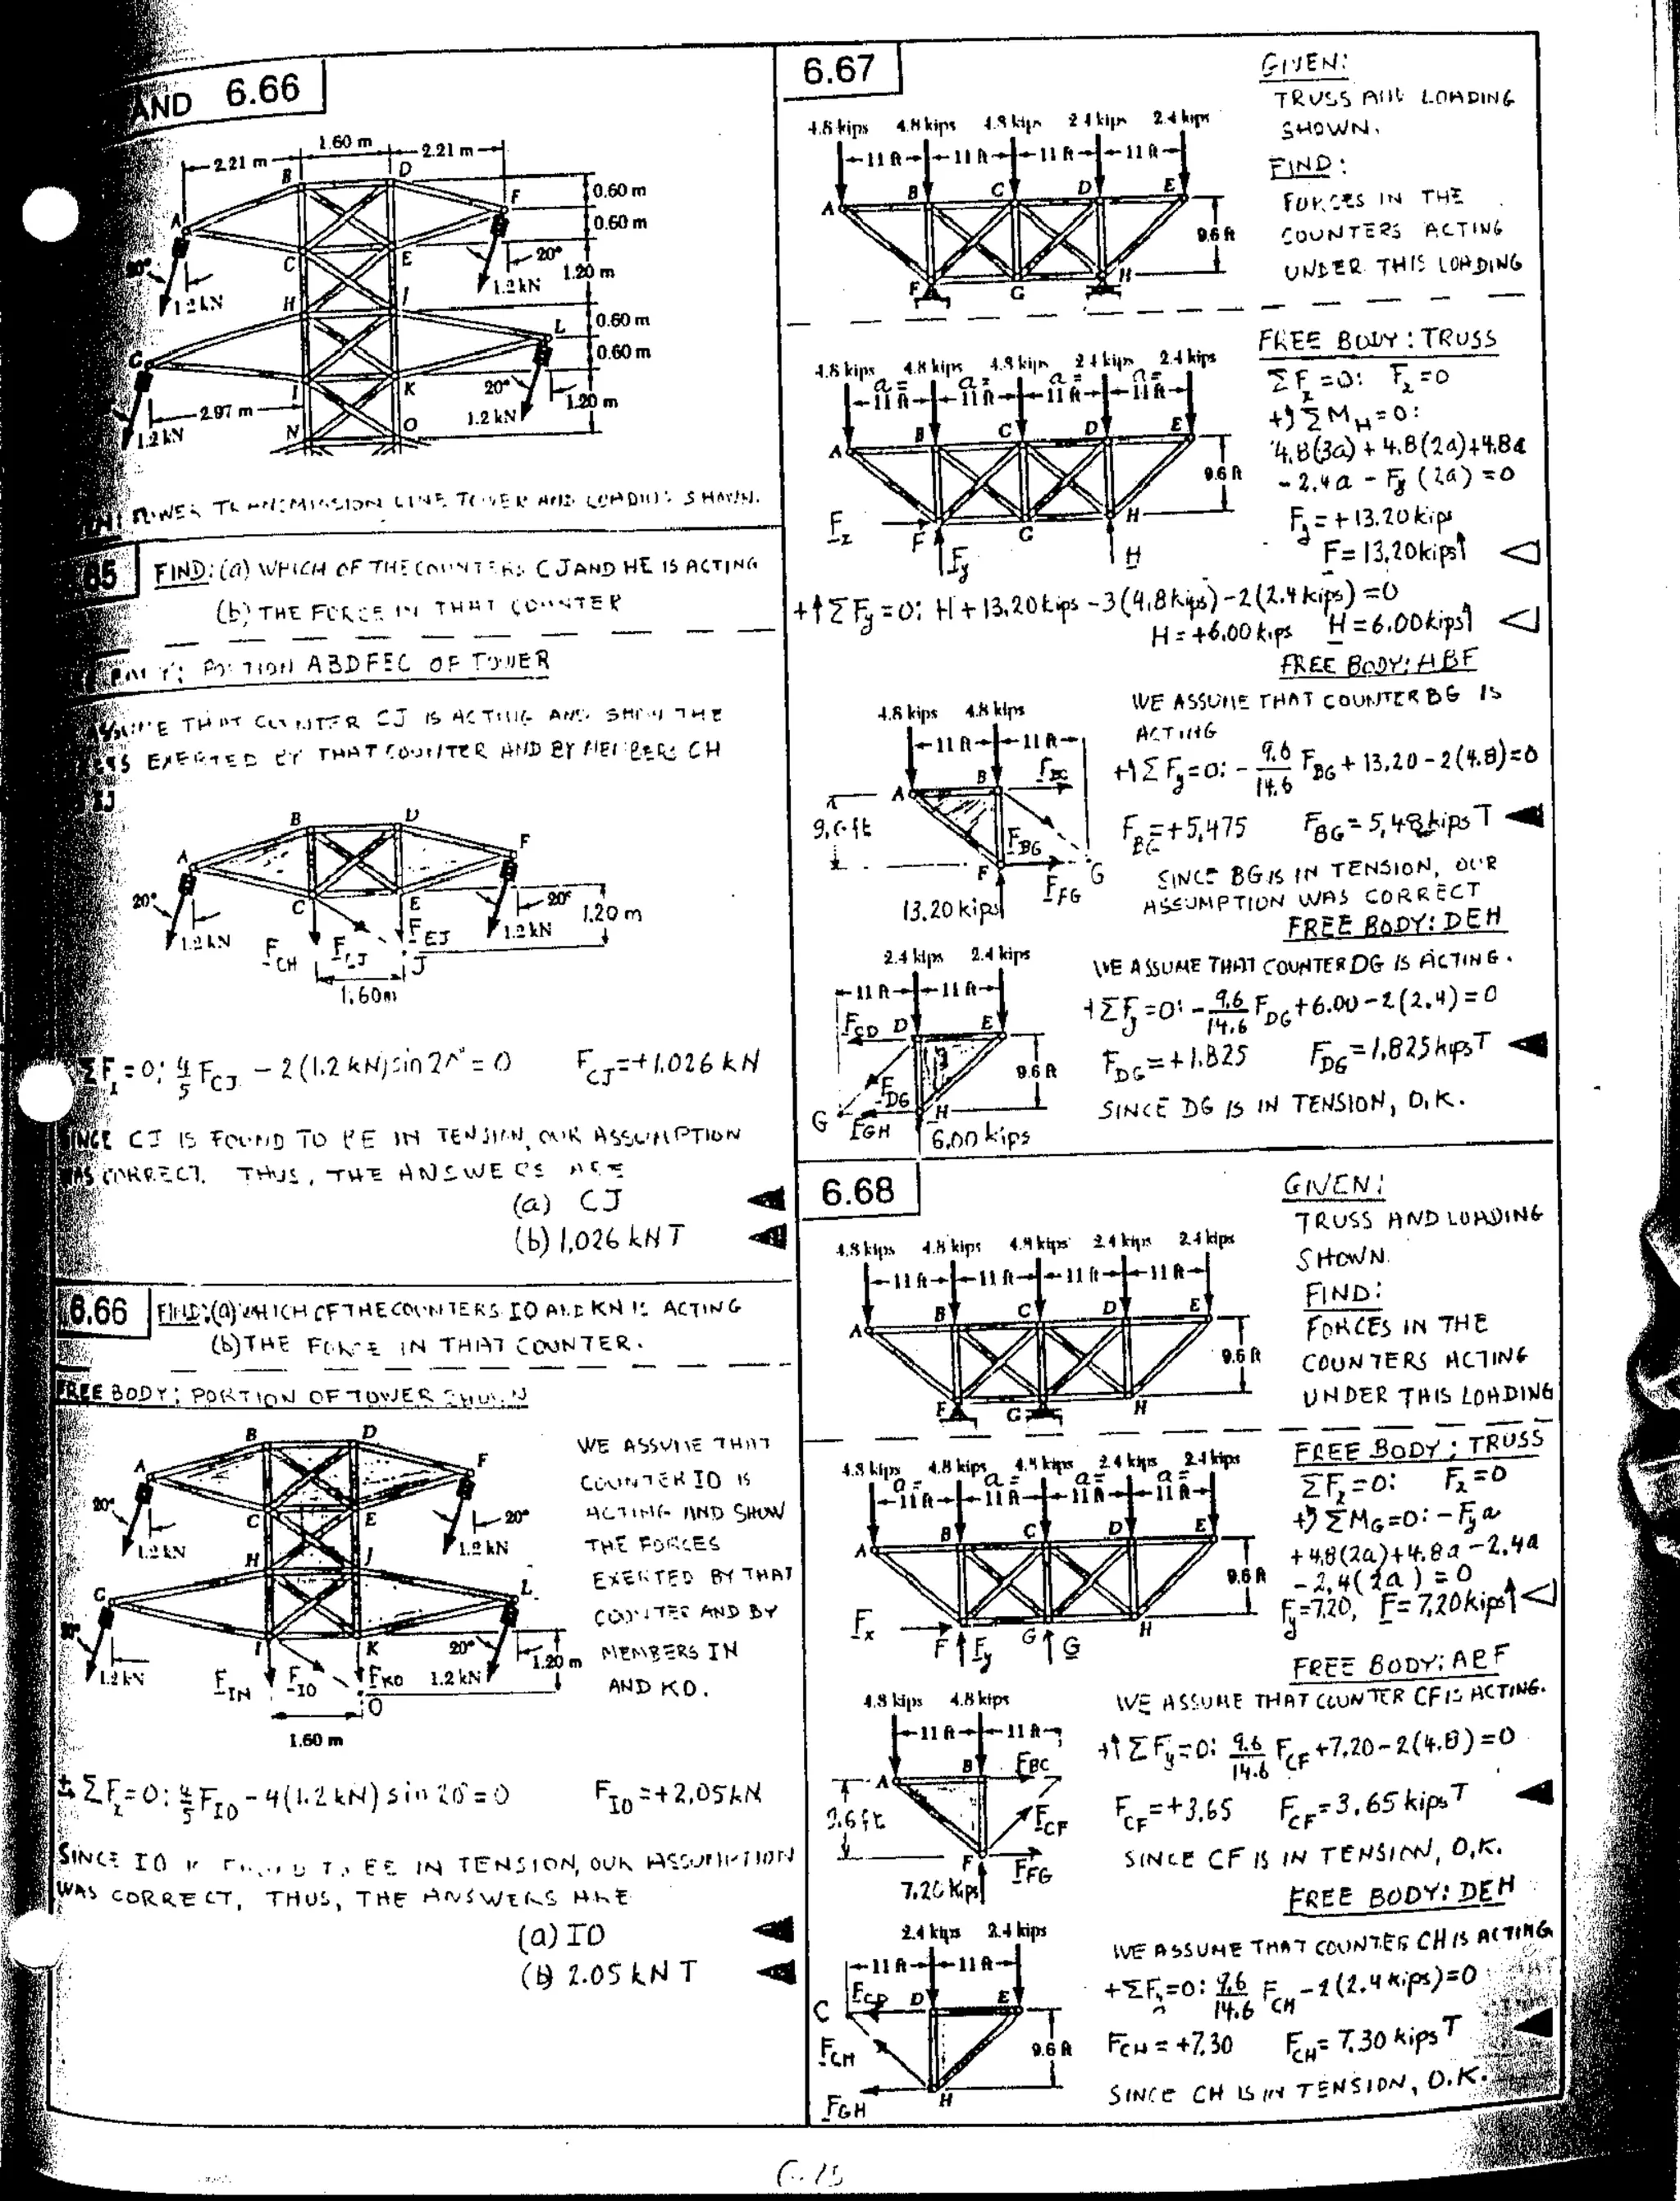 AND 6.66
2.21 m
1.60 m
2.21 m
B
D
F
0.60 m
0.60 m
A
C
E
20°
1.20 m
1.2 kN
1.2 kN
H
J
0.60 m
L
0.60 m
G
K
20°
1.20 m
2.97 m
1.2 kN
1.2 kN
N
O
TRANSMISSION LINE TOWER AND LOADING SHOWN.
FIND: (a) WHICH OF THE COUNTERS CJ AND HE IS ACTING
(b) THE FORCE IN THAT COUNTER
PORTION ABDFEC OF TOWER
THAT COUNTER CJ IS ACTING AND SHOW THE
EXERTED BY THAT COUNTER AND BY MEMBERS CH
EJ
B
D
A
F
20°
C
E
20°
1.20 m
1.2 kN
1.2 kN
F_CH
F_CJ
F_EJ
J
1.60m
ΣF_x = 0: 4/5 F_CJ - 2(1.2 kN) sin 20° = 0 F_CJ = +1.026 kN
CJ IS FOUND TO BE IN TENSION, OUR ASSUMPTION
CORRECT. THUS, THE ANSWERS ARE
(a) CJ
(b) 1.026 kN T
6.66
FIND: (a) WHICH OF THE COUNTERS IO AND KN IS ACTING
(b) THE FORCE IN THAT COUNTER.
FREE BODY: PORTION OF TOWER SHOWN
B
D
A
F
20°
C
E
20°
1.2 kN
1.2 kN
H
J
G
L
I
K
20°
1.20 m
1.2 kN
F_IN
F_IO
F_KO
1.2 kN
O
1.60 m
WE ASSUME THAT
COUNTER IO IS
ACTING AND SHOW
THE FORCES
EXERTED BY THAT
COUNTER AND BY
MEMBERS IN
AND KO.
ΣF_x = 0: 4/5 F_IO - 4(1.2 kN) sin 20° = 0 F_IO = +2.05 kN
SINCE IO IS FOUND TO BE IN TENSION, OUR ASSUMPTION
WAS CORRECT. THUS, THE ANSWERS ARE
(a) IO
(b) 2.05 kN T
6.67
GIVEN:
TRUSS AND LOADING
SHOWN.
FIND:
FORCES IN THE
COUNTERS ACTING
UNDER THIS LOADING
4.8 kips 4.8 kips 4.8 kips 2.4 kips 2.4 kips
11 ft 11 ft 11 ft 11 ft
A B C D E
9.6 ft
F G H
FREE BODY: TRUSS
ΣF_x = 0: F_x = 0
+) ΣM_H = 0:
4.8(3a) + 4.8(2a) + 4.8a
- 2.4a - F_y (2a) = 0
F_y = + 13.20 kips
F = 13.20 kips ↑
4.8 kips 4.8 kips 4.8 kips 2.4 kips 2.4 kips
a = a = a = a =
11 ft 11 ft 11 ft 11 ft
A B C D E
9.6 ft
F_x
F G H
F_y H
+↑ΣF_y = 0: H + 13.20 kips - 3(4.8 kips) - 2(2.4 kips) = 0
H = +6.00 kips H = 6.00 kips ↑
FREE BODY: ABF
WE ASSUME THAT COUNTER BG IS
ACTING
+↑ΣF_y = 0: - 9.6/14.6 F_BG + 13.20 - 2(4.8) = 0
F_BG = +5.475 F_BG = 5.48 kips T
SINCE BG IS IN TENSION, OUR
ASSUMPTION WAS CORRECT
4.8 kips 4.8 kips
11 ft 11 ft
A B F_BC
9.6 ft
F_BG
F F_FG G
13.20 kips
FREE BODY: DEH
WE ASSUME THAT COUNTER DG IS ACTING.
+ΣF_y = 0: - 9.6/14.6 F_DG + 6.00 - 2(2.4) = 0
F_DG = +1.825 F_DG = 1.825 kips T
SINCE DG IS IN TENSION, O.K.
2.4 kips 2.4 kips
11 ft 11 ft
F_CD D E
9.6 ft
F_DG
G F_GH H
6.00 kips
6.68
GIVEN:
TRUSS AND LOADING
SHOWN.
FIND:
FORCES IN THE
COUNTERS ACTING
UNDER THIS LOADING
4.8 kips 4.8 kips 4.8 kips 2.4 kips 2.4 kips
11 ft 11 ft 11 ft 11 ft
A B C D E
9.6 ft
F G H
FREE BODY: TRUSS
ΣF_x = 0: F_x = 0
+) ΣM_G = 0: - F_y a
+ 4.8(2a) + 4.8a - 2.4a
- 2.4(2a) = 0
F_y = 7.20, F = 7.20 kips ↑
4.8 kips 4.8 kips 4.8 kips 2.4 kips 2.4 kips
a = a = a = a =
11 ft 11 ft 11 ft 11 ft
A B C D E
9.6 ft
F_x
F F_y G G H
FREE BODY: ABF
WE ASSUME THAT COUNTER CF IS ACTING.
+↑ΣF_y = 0: 9.6/14.6 F_CF + 7.20 - 2(4.8) = 0
F_CF = +3.65 F_CF = 3.65 kips T
SINCE CF IS IN TENSION, O.K.
4.8 kips 4.8 kips
11 ft 11 ft
A B F_BC
9.6 ft
F_CF
F F_FG
7.20 kips
FREE BODY: DEH
WE ASSUME THAT COUNTER CH IS ACTING
+ΣF_y = 0: 9.6/14.6 F_CH - 2(2.4 kips) = 0
F_CH = +7.30 F_CH = 7.30 kips T
SINCE CH IS IN TENSION, O.K.
2.4 kips 2.4 kips
11 ft 11 ft
C F_CD D E
F_CH
9.6 ft
F_GH H